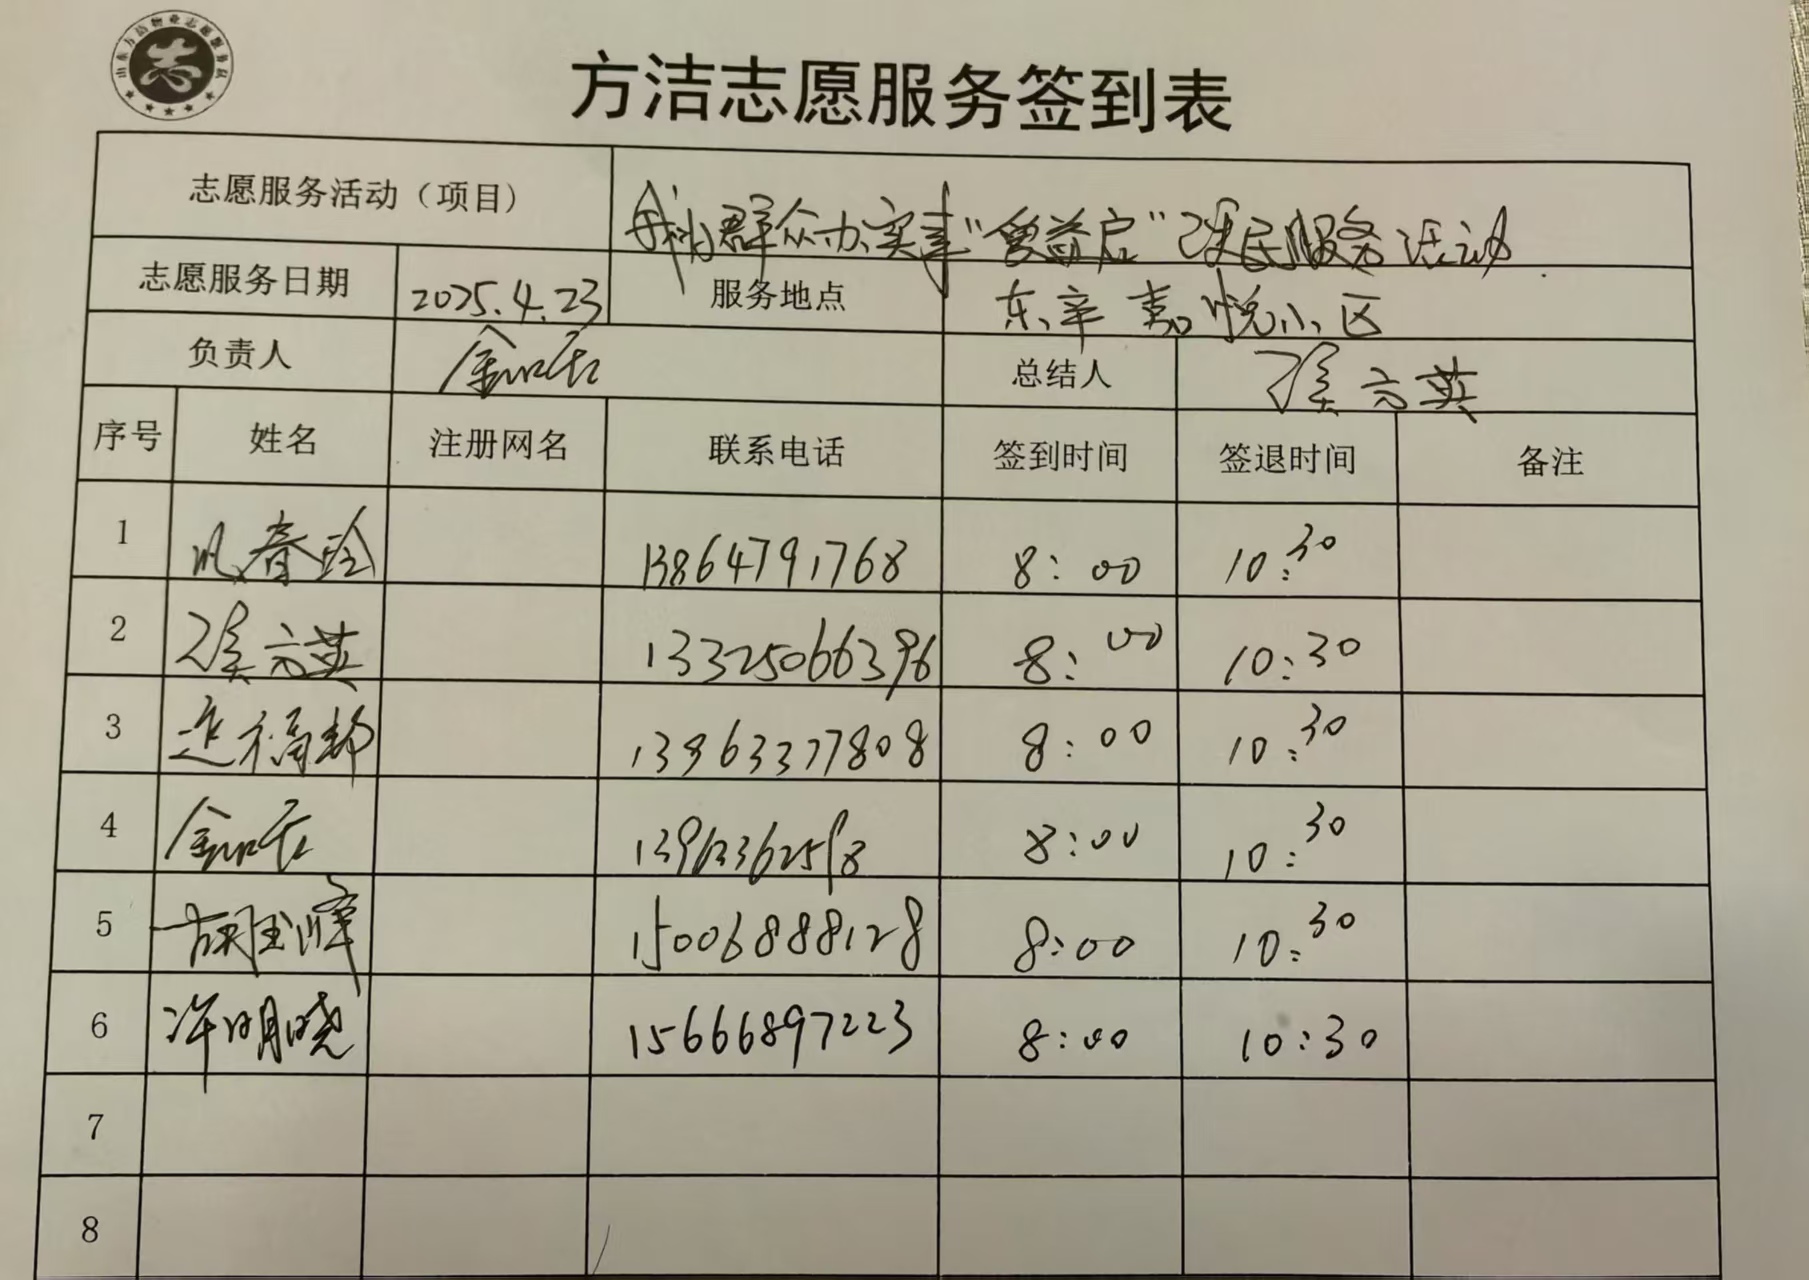 山东方洁物业志愿服务队
志
方洁志愿服务签到表
志愿服务活动（项目） 我为群众办实事“ ”便民服务活动
志愿服务日期 2025.4.23 服务地点 东辛嘉悦小区
负责人 总结人
序号 姓名 注册网名 联系电话 签到时间 签退时间 备注
1 13864791768 8:00 10:30
2 13325066396 8:00 10:30
3 8:00 10:30
4 8:00 10:30
5 15006888128 8:00 10:30
6 许明晓 15666897223 8:00 10:30
7
8